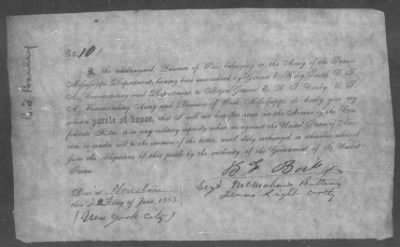 No. 101
I, the undersigned, Prisoner of War, belonging to the Army of the Trans-
Mississippi Department, having been surrendered by General E. Kirby Smith, C. S.
A., Commanding said Department, to Major General E. R. S. Canby, U. S.
A., Commanding Army and Division of West Mississippi, do hereby give my
solemn parole of honor, that I will not hereafter serve in the Armies of the Con-
federate States, or in any military capacity whatever, against the United States of Am-
erica, or render aid to the enemies of the latter, until duly exchanged, or otherwise released
from the obligations of this parole by the authority of the Government of the United
States.
B F
Sergt McMahan's Battery
Texas Light Arty
Done at Houston
this 22d day of June 1865.
(New York City)